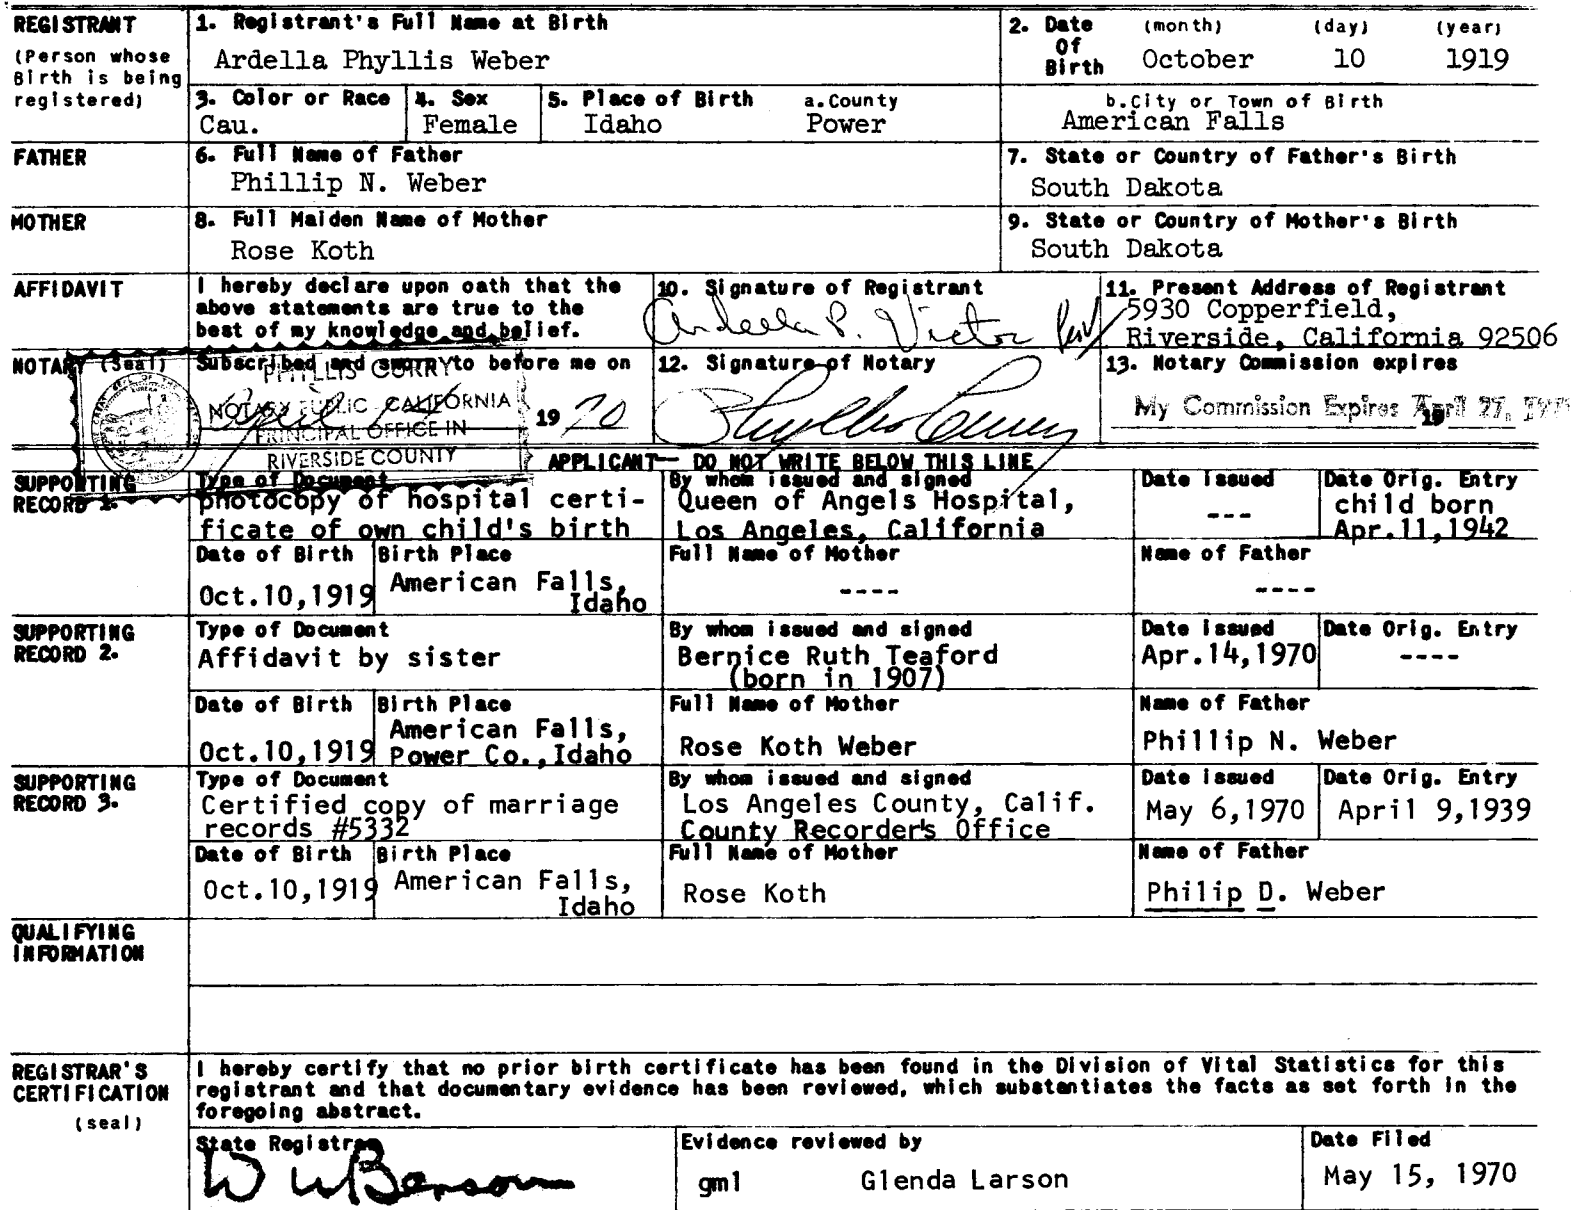 REGISTRANT
(Person whose
Birth is being
registered)
1. Registrant's Full Name at Birth
Ardella Phyllis Weber
2. Date Of Birth (month) (day) (year)
October 10 1919
3. Color or Race
Cau.
4. Sex
Female
5. Place of Birth a.County
Idaho Power
b.City or Town of Birth
American Falls
FATHER
6. Full Name of Father
Phillip N. Weber
7. State or Country of Father's Birth
South Dakota
MOTHER
8. Full Maiden Name of Mother
Rose Koth
9. State or Country of Mother's Birth
South Dakota
AFFIDAVIT
I hereby declare upon oath that the
above statements are true to the
best of my knowledge and belief.
10. Signature of Registrant
Ardella P. Victor
11. Present Address of Registrant
5930 Copperfield,
Riverside, California 92506
NOTARY (Seal)
Subscribed and sworn to before me on
April 1970
PHYLLIS CURRY
NOTARY PUBLIC CALIFORNIA
PRINCIPAL OFFICE IN
RIVERSIDE COUNTY
12. Signature of Notary
Phyllis Curry
13. Notary Commission expires
My Commission Expires April 27, 19
APPLICANT— DO NOT WRITE BELOW THIS LINE
SUPPORTING
RECORD 1.
Type of Document
photocopy of hospital certi-
ficate of own child's birth
By whom issued and signed
Queen of Angels Hospital,
Los Angeles, California
Date issued
---
Date Orig. Entry
child born
Apr.11,1942
Date of Birth
Oct.10,1919
Birth Place
American Falls,
Idaho
Full Name of Mother
----
Name of Father
----
SUPPORTING
RECORD 2.
Type of Document
Affidavit by sister
By whom issued and signed
Bernice Ruth Teaford
(born in 1907)
Date issued
Apr.14,1970
Date Orig. Entry
----
Date of Birth
Oct.10,1919
Birth Place
American Falls,
Power Co.,Idaho
Full Name of Mother
Rose Koth Weber
Name of Father
Phillip N. Weber
SUPPORTING
RECORD 3.
Type of Document
Certified copy of marriage
records #5332
By whom issued and signed
Los Angeles County, Calif.
County Recorder's Office
Date issued
May 6,1970
Date Orig. Entry
April 9,1939
Date of Birth
Oct.10,1919
Birth Place
American Falls,
Idaho
Full Name of Mother
Rose Koth
Name of Father
Philip D. Weber
QUALIFYING
INFORMATION
REGISTRAR'S
CERTIFICATION
(seal)
I hereby certify that no prior birth certificate has been found in the Division of Vital Statistics for this
registrant and that documentary evidence has been reviewed, which substantiates the facts as set forth in the
foregoing abstract.
State Registrar
W W Benson
Evidence reviewed by
gml Glenda Larson
Date Filed
May 15, 1970